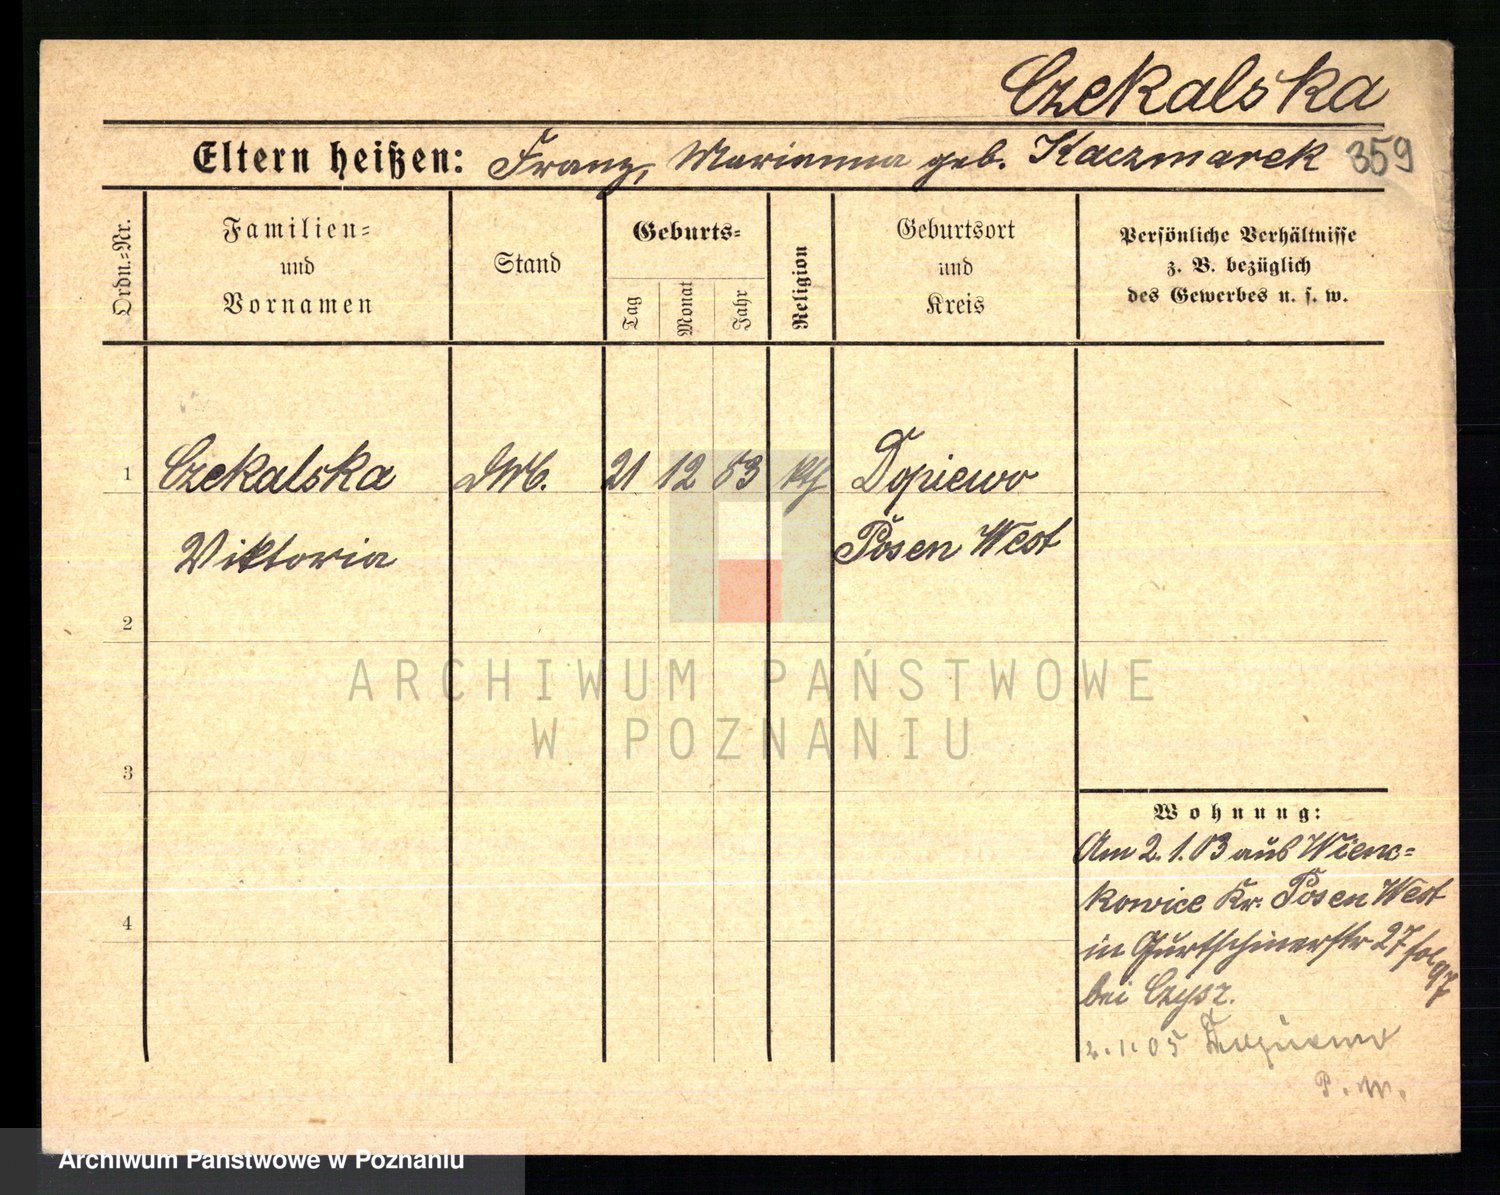 Czekalska
Eltern heißen: Franz, Marianna geb. Kaczmarek 359
Ordn.-Nr.
Familien-
und
Vornamen
Stand
Geburts-
Tag
Monat
Jahr
Religion
Geburtsort
und
Kreis
Persönliche Verhältnisse
z. B. bezüglich
des Gewerbes u. s. w.
1 Czekalska 21 12 83 kth Dopiewo
Viktoria Posen West
2
ARCHIWUM PAŃSTWOWE
W POZNANIU
3
Wohnung:
Am 2.1.03 aus Wienc-
kowice Kr. Posen West
4
in Gurtschinerstr 27 fol 97
bei Czysz.
2.1.05 Dopiewo
P. W.
Archiwum Państwowe w Poznaniu